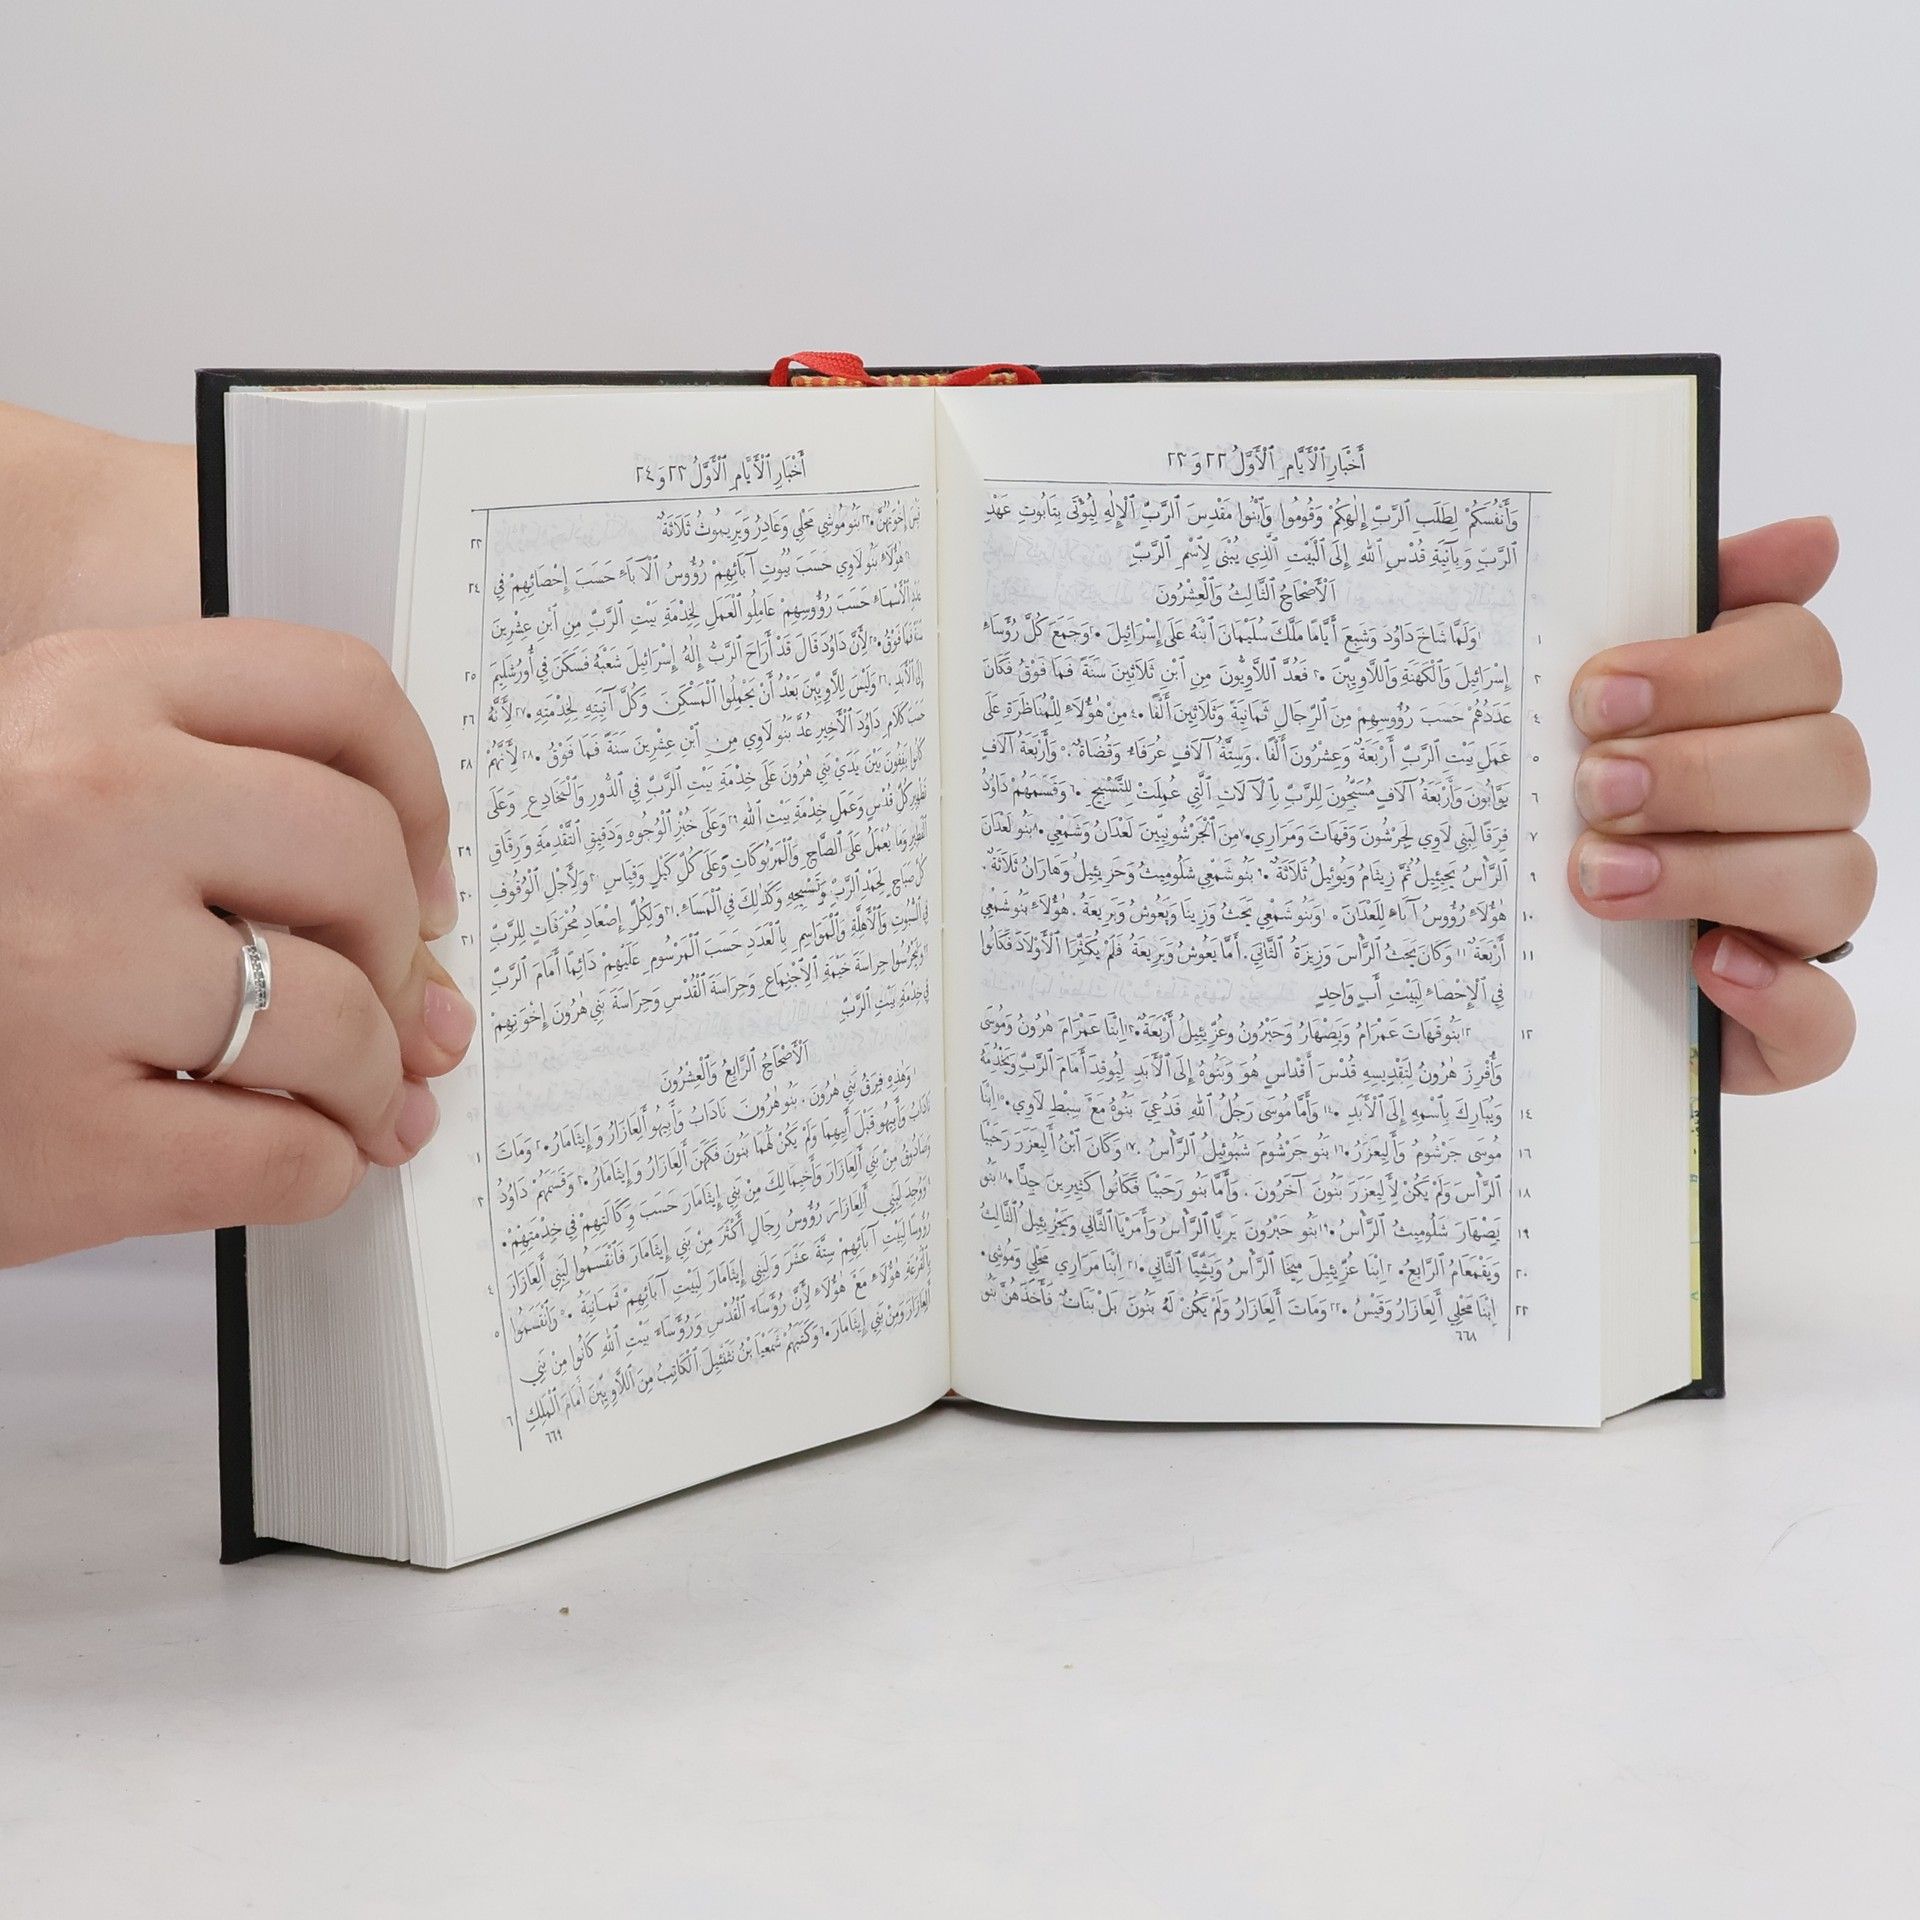 أَخْبَارِ ٱلْأَيَّامِ ٱلْأَوَّلُ ٢٢ وَ ٢٣
وَأَنْفُسَكُمْ لِطَلَبِ ٱلرَّبِّ إِلٰهِكُمْ وَقُومُوا وَٱبْنُوا مَقْدِسَ ٱلرَّبِّ ٱلْإِلٰهِ لِيُؤْتَى بِتَابُوتِ عَهْدِ
ٱلرَّبِّ وَبِآنِيَةِ قُدْسِ ٱللهِ إِلَى ٱلْبَيْتِ ٱلَّذِي يُبْنَى لِٱسْمِ ٱلرَّبِّ
اَلْأَصْحَاحُ ٱلثَّالِثُ وَٱلْعِشْرُونَ
١ ١وَلَمَّا شَاخَ دَاوُدُ وَشَبِعَ أَيَّامًا مَلَّكَ سُلَيْمَانَ ٱبْنَهُ عَلَى إِسْرَائِيلَ .٢وَجَمَعَ كُلَّ رُؤَسَاءِ
٢ إِسْرَائِيلَ وَٱلْكَهَنَةِ وَٱللَّاوِيِّينَ .٣ فَعُدَّ ٱللَّاوِيُّونَ مِنِ ٱبْنِ ثَلَاثِينَ سَنَةً فَمَا فَوْقُ فَكَانَ
٤ عَدَدُهُمْ حَسَبَ رُؤُوسِهِمْ مِنَ ٱلرِّجَالِ ثَمَانِيَةً وَثَلَاثِينَ أَلْفًا .٤ مِنْ هٰؤُلَاءِ لِلْمُنَاظَرَةِ عَلَى
٥ عَمَلِ بَيْتِ ٱلرَّبِّ أَرْبَعَةٌ وَعِشْرُونَ أَلْفًا . وَسِتَّةُ آلَافٍ عُرَفَاءُ وَقُضَاةٌ .٥ وَأَرْبَعَةُ آلَافٍ
٦ بَوَّابُونَ وَأَرْبَعَةُ آلَافٍ مُسَبِّحُونَ لِلرَّبِّ بِٱلْآلَاتِ ٱلَّتِي عُمِلَتْ لِلتَّسْبِيحِ .٦ وَقَسَمَهُمْ دَاوُدُ
٧ فِرَقًا لِبَنِي لَاوِي لِجَرْشُونَ وَقَهَاتَ وَمَرَارِي .٧ مِنَ ٱلْجَرْشُونِيِّينَ لَعْدَانُ وَشَمْعِي .٨ بَنُو لَعْدَانَ
٩ ٱلرَّأْسُ يَحِيئِيلُ ثُمَّ زِيثَامُ وَيُوئِيلُ ثَلَاثَةٌ .٩ بَنُو شَمْعِي شَلُومِيثُ وَحَزِيئِيلُ وَهَارَانُ ثَلَاثَةٌ .
١٠ هٰؤُلَاءِ رُؤُوسُ آبَاءٍ لِلَعْدَانَ .١٠ وَبَنُو شَمْعِي يَحَثُ وَزِينَا وَيَعُوشُ وَبَرِيعَةُ . هٰؤُلَاءِ بَنُو شَمْعِي
١١ أَرْبَعَةٌ ١١ وَكَانَ يَحَثُ ٱلرَّأْسَ وَزِيزَةُ ٱلثَّانِيَ . أَمَّا يَعُوشُ وَبَرِيعَةُ فَلَمْ يُكَثِّرَا ٱلْأَوْلَادَ فَكَانُوا
فِي ٱلْإِحْصَاءِ لِبَيْتِ أَبٍ وَاحِدٍ
١٢ ١٢بَنُو قَهَاتَ عَمْرَامُ وَيِصْهَارُ وَحَبْرُونُ وَعُزِّيئِيلُ أَرْبَعَةٌ .١٣اِبْنَا عَمْرَامَ هٰرُونُ وَمُوسَى
وَأُفْرِزَ هٰرُونُ لِتَقْدِيسِهِ قُدْسَ أَقْدَاسٍ هُوَ وَبَنُوهُ إِلَى ٱلْأَبَدِ لِيُوقِدَ أَمَامَ ٱلرَّبِّ وَيَخْدِمَهُ
١٤ وَيُبَارِكَ بِٱسْمِهِ إِلَى ٱلْأَبَدِ .١٤ وَأَمَّا مُوسَى رَجُلُ ٱللهِ فَدُعِيَ بَنُوهُ مَعَ سِبْطِ لَاوِي .١٥ اِبْنَا
١٦ مُوسَى جَرْشُومُ وَأَلِيعَزَرُ .١٦ بَنُو جَرْشُومَ شَبُوئِيلُ ٱلرَّأْسُ .١٧ وَكَانَ ٱبْنُ أَلِيعَزَرَ رَحَبْيَا
١٨ ٱلرَّأْسَ وَلَمْ يَكُنْ لِأَلِيعَزَرَ بَنُونَ آخَرُونَ . وَأَمَّا بَنُو رَحَبْيَا فَكَانُوا كَثِيرِينَ جِدًّا .١٨ بَنُو
١٩ يِصْهَارَ شَلُومِيثُ ٱلرَّأْسُ .١٩ بَنُو حَبْرُونَ يَرِيَّا ٱلرَّأْسُ وَأَمَرْيَا ٱلثَّانِي وَيَحْزِيئِيلُ ٱلثَّالِثُ
٢٠ وَيَقْمَعَامُ ٱلرَّابِعُ .٢٠ اِبْنَا عُزِّيئِيلَ مِيخَا ٱلرَّأْسُ وَيَشِّيَّا ٱلثَّانِي .٢١ اِبْنَا مَرَارِي مَحْلِي وَمُوشِي .
٢٢ اِبْنَا مَحْلِي أَلِعَازَارُ وَقَيْسُ .٢٢ وَمَاتَ أَلِعَازَارُ وَلَمْ يَكُنْ لَهُ بَنُونَ بَلْ بَنَاتٌ فَأَخَذَهُنَّ بَنُو
٦٦٨
أَخْبَارِ ٱلْأَيَّامِ ٱلْأَوَّلُ ٢٣ وَ ٢٤
٢٣ قَيْسَ إِخْوَتُهُنَّ .٢٣ بَنُو مُوشِي مَحْلِي وَعَادِرُ وَيَرِيمُوثُ ثَلَاثَةٌ
٢٤ هٰؤُلَاءِ بَنُو لَاوِي حَسَبَ بُيُوتِ آبَائِهِمْ رُؤُوسُ ٱلْآبَاءِ حَسَبَ إِحْصَائِهِمْ فِي
عَدَدِ ٱلْأَسْمَاءِ حَسَبَ رُؤُوسِهِمْ عَامِلُو ٱلْعَمَلِ لِخِدْمَةِ بَيْتِ ٱلرَّبِّ مِنِ ٱبْنِ عِشْرِينَ
٢٥ سَنَةً فَمَا فَوْقُ .٢٥ لِأَنَّ دَاوُدَ قَالَ قَدْ أَرَاحَ ٱلرَّبُّ إِلٰهُ إِسْرَائِيلَ شَعْبَهُ فَسَكَنَ فِي أُورُشَلِيمَ
٢٦ إِلَى ٱلْأَبَدِ .٢٦ وَلَيْسَ لِلَّاوِيِّينَ بَعْدُ أَنْ يَحْمِلُوا ٱلْمَسْكَنَ وَكُلَّ آنِيَتِهِ لِخِدْمَتِهِ .٢٧ لِأَنَّهُ
حَسَبَ كَلَامِ دَاوُدَ ٱلْأَخِيرِ عُدَّ بَنُو لَاوِي مِنِ ٱبْنِ عِشْرِينَ سَنَةً فَمَا فَوْقُ .٢٨ لِأَنَّهُمْ
٢٨ كَانُوا يَقِفُونَ بَيْنَ يَدَيْ بَنِي هٰرُونَ عَلَى خِدْمَةِ بَيْتِ ٱلرَّبِّ فِي ٱلدُّورِ وَٱلْمَخَادِعِ وَعَلَى
تَطْهِيرِ كُلِّ قُدْسٍ وَعَمَلِ خِدْمَةِ بَيْتِ ٱللهِ ٢٩ وَعَلَى خُبْزِ ٱلْوُجُوهِ وَدَقِيقِ ٱلتَّقْدِمَةِ وَرِقَاقِ
٢٩ ٱلْفَطِيرِ وَمَا يُعْمَلُ عَلَى ٱلصَّاجِ وَٱلْمَرْبُوكَاتِ وَعَلَى كُلِّ كَيْلٍ وَقِيَاسٍ ٣٠ وَلِأَجْلِ ٱلْوُقُوفِ
٣٠ كُلَّ صَبَاحٍ لِحَمْدِ ٱلرَّبِّ وَتَسْبِيحِهِ وَكَذٰلِكَ فِي ٱلْمَسَاءِ .٣١ وَلِكُلِّ إِصْعَادِ مُحْرَقَاتٍ لِلرَّبِّ
٣١ فِي ٱلسُّبُوتِ وَٱلْأَهِلَّةِ وَٱلْمَوَاسِمِ بِٱلْعَدَدِ حَسَبَ ٱلْمَرْسُومِ عَلَيْهِمْ دَائِمًا أَمَامَ ٱلرَّبِّ
٣٢ وَلِيَحْرُسُوا حِرَاسَةَ خَيْمَةِ ٱلِٱجْتِمَاعِ وَحِرَاسَةَ ٱلْقُدْسِ وَحِرَاسَةَ بَنِي هٰرُونَ إِخْوَتِهِمْ
فِي خِدْمَةِ بَيْتِ ٱلرَّبِّ
اَلْأَصْحَاحُ ٱلرَّابِعُ وَٱلْعِشْرُونَ
١ وَهٰذِهِ فِرَقُ بَنِي هٰرُونَ . بَنُو هٰرُونَ نَادَابُ وَأَبِيهُو أَلِعَازَارُ وَإِيثَامَارُ .٢ وَمَاتَ
نَادَابُ وَأَبِيهُو قَبْلَ أَبِيهِمَا وَلَمْ يَكُنْ لَهُمَا بَنُونَ فَكَهَنَ أَلِعَازَارُ وَإِيثَامَارُ .٣ وَقَسَمَهُمْ دَاوُدُ
٣ وَصَادُوقُ مِنْ بَنِي أَلِعَازَارَ وَأَخِيمَالِكُ مِنْ بَنِي إِيثَامَارَ حَسَبَ وَكَالَتِهِمْ فِي خِدْمَتِهِمْ .
٤ وَوُجِدَ لِبَنِي أَلِعَازَارَ رُؤُوسُ رِجَالٍ أَكْثَرَ مِنْ بَنِي إِيثَامَارَ فَٱنْقَسَمُوا لِبَنِي أَلِعَازَارَ
رُؤُوسًا لِبَيْتِ آبَائِهِمْ سِتَّةَ عَشَرَ وَلِبَنِي إِيثَامَارَ لِبَيْتِ آبَائِهِمْ ثَمَانِيَةً .٥ وَٱنْقَسَمُوا
٥ بِٱلْقُرْعَةِ هٰؤُلَاءِ مَعَ هٰؤُلَاءِ لِأَنَّ رُؤَسَاءَ ٱلْقُدْسِ وَرُؤَسَاءَ بَيْتِ ٱللهِ كَانُوا مِنْ بَنِي
٦ أَلِعَازَارَ وَمِنْ بَنِي إِيثَامَارَ .٦ وَكَتَبَهُمْ شَمَعْيَا بْنُ نَثَنْئِيلَ ٱلْكَاتِبُ مِنَ ٱللَّاوِيِّينَ أَمَامَ ٱلْمَلِكِ
٦٦٩